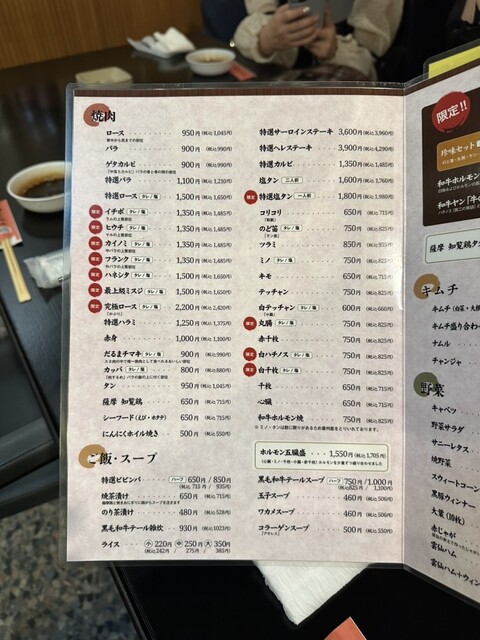 焼肉
ロース 950円(税込1,045円)
バラ 900円(税込990円)
ゲタカルビ 900円(税込990円)
特選バラ 1,100円(税込1,210円)
特選ロース タレ/塩 1,500円(税込1,650円)
限定 イチボ タレ/塩 1,350円(税込1,485円)
限定 ヒウチ タレ/塩 1,350円(税込1,485円)
限定 カイノミ タレ/塩 1,350円(税込1,485円)
限定 フランク タレ/塩 1,350円(税込1,485円)
限定 ハネシタ タレ/塩 1,500円(税込1,650円)
限定 最上級ミスジ タレ/塩 1,500円(税込1,650円)
限定 究極ロース タレ/塩 2,200円(税込2,420円)
特選ハラミ 1,250円(税込1,375円)
赤身 1,000円(税込1,100円)
だるまチマキ タレ/塩 900円(税込990円)
カッパ タレ/塩 800円(税込880円)
タン 950円(税込1,045円)
薩摩 知覧鶏 650円(税込715円)
シーフード(えび・ホタテ) 650円(税込715円)
にんにくホイル焼き 500円(税込550円)
特選サーロインステーキ 3,600円(税込3,960円)
特選ヘレステーキ 3,900円(税込4,290円)
特選カルビ 1,350円(税込1,485円)
塩タン 二人前 1,600円(税込1,760円)
限定 特選塩タン 一人前 1,800円(税込1,980円)
コリコリ 650円(税込715円)
のど笛 タレ/塩 750円(税込825円)
ツラミ 850円(税込935円)
ミノ タレ/塩 750円(税込825円)
キモ 650円(税込715円)
テッチャン 750円(税込825円)
白テッチャン タレ/塩 600円(税込660円)
限定 丸腸 タレ/塩 750円(税込825円)
赤千枚 750円(税込825円)
限定 白ハチノス タレ/塩 750円(税込825円)
限定 白千枚 タレ/塩 750円(税込825円)
千枚 650円(税込715円)
心臓 650円(税込715円)
和牛ホルモン焼 750円(税込825円)
※ミノ・タンは数に限りがあるため数量制限をとりいれております。
ホルモン五臓盛 1,550円(税込1,705円)
ご飯・スープ
特選ビビンバ ハーフ 650円/850円
(税込715円/935円)
焼茶漬け 650円(税込715円)
のり茶漬け 480円(税込528円)
黒毛和牛テール雑炊 930円(税込1023円)
ライス 小220円 中250円 大350円
(税込242円/275円/385円)
黒毛和牛テールスープ ハーフ 750円/1,000円
(税込825円/1,100円)
玉子スープ 460円(税込506円)
ワカメスープ 460円(税込506円)
コラーゲンスープ 500円(税込550円)
限定!!
珍味セット
和牛ホルモン
和牛ヤン「牛
薩摩 知覧鶏タ
キムチ
キムチ(白菜・大根
キムチ盛り合わ
ナムル
チャンジャ
野菜
キャベツ
野菜サラダ
サニーレタス
焼野菜
スウィートコーン
黒豚ウィンナー
大葉(10枚)
赤じゃが
雲仙ハム
雲仙ハム+ウィン